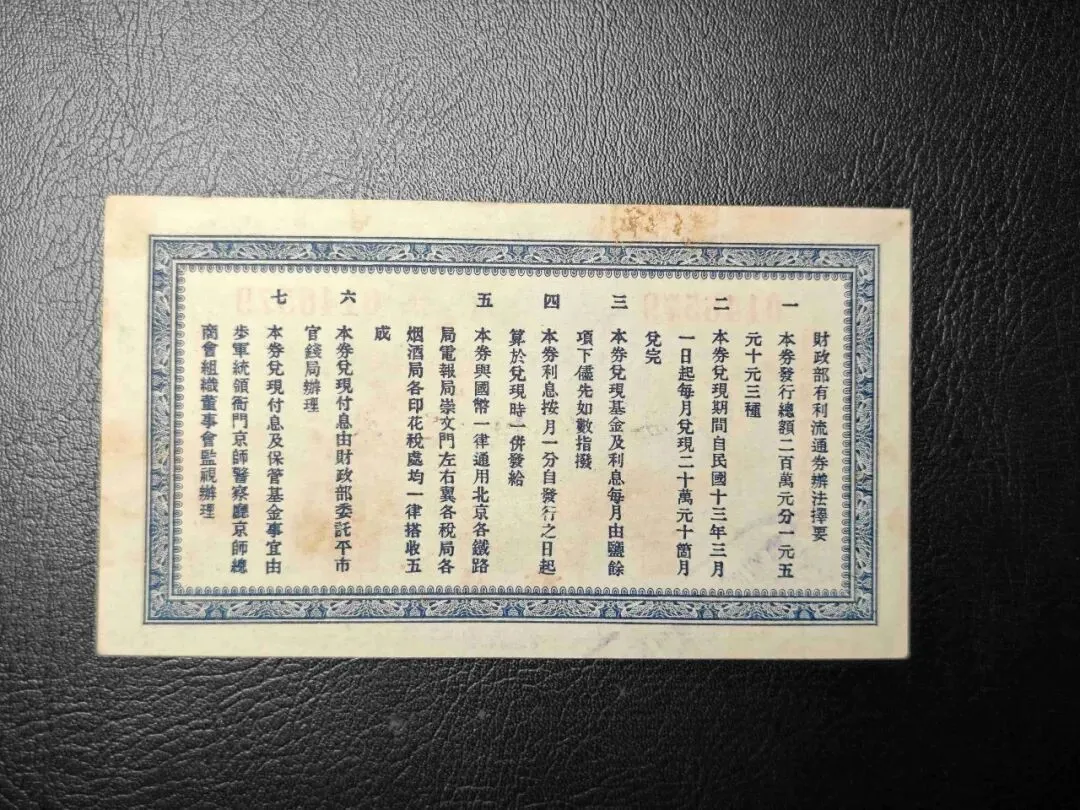 財政部有利流通券辦法擇要
一 本券發行總額二百萬元分一元五
元十元三種
二 本券兌現期間自民國十三年三月
一日起每月兌現二十萬元十箇月
兌完
三 本券兌現基金及利息每月由鹽餘
項下儘先如數指撥
四 本券利息按月一分自發行之日起
算於兌現時一併發給
五 本券與國幣一律通用北京各鐵路
局電報局崇文門左右翼各稅局各
烟酒局各印花稅處均一律搭收五
成
六 本券兌現付息由財政部委託平市
官錢局辦理
七 本券兌現付息及保管基金事宜由
步軍統領衙門京師警察廳京師總
商會組織董事會監視辦理